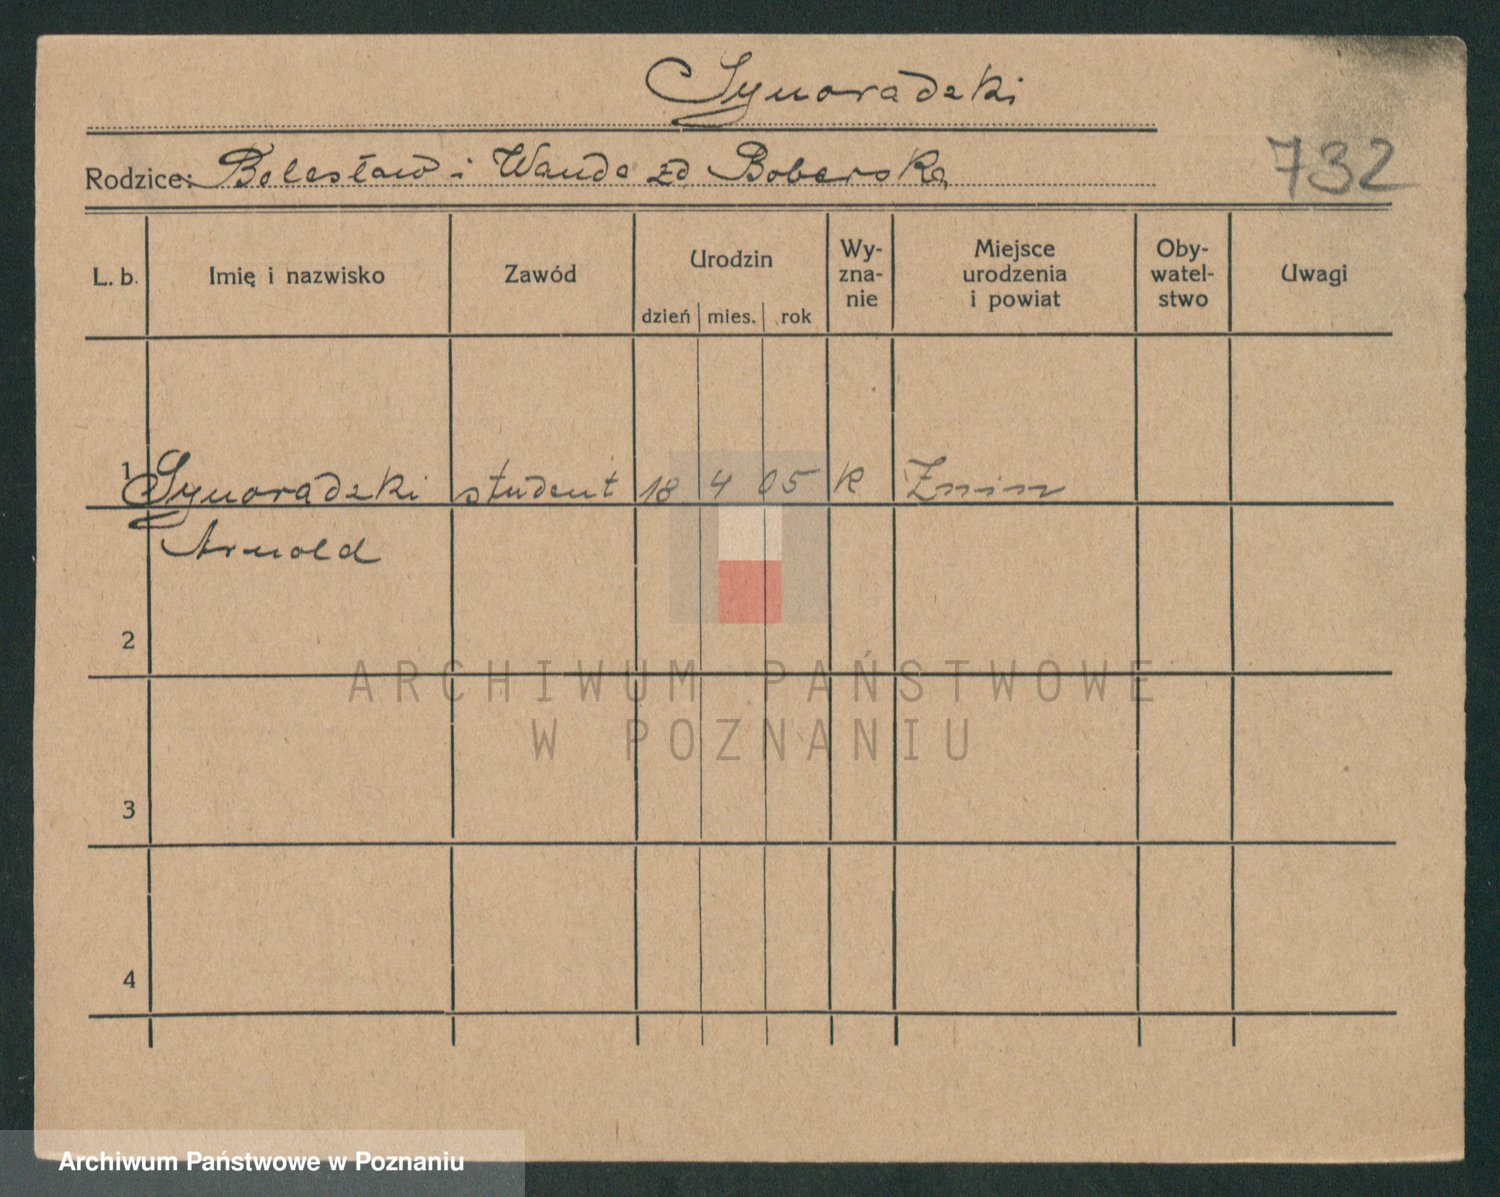 Synoradzki
Rodzice: Bolesław i Wanda zd Boberska
732
L. b.
Imię i nazwisko
Zawód
Urodzin
dzień mies. rok
Wy-
zna-
nie
Miejsce
urodzenia
i powiat
Oby-
watel-
stwo
Uwagi
1 Synoradzki student 18 4 05 k Żnin
Arnold
2
3
4
ARCHIWUM PAŃSTWOWE
W POZNANIU
Archiwum Państwowe w Poznaniu